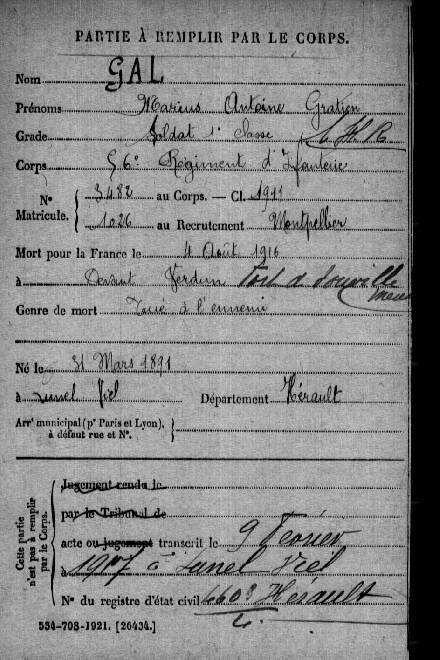 PARTIE À REMPLIR PAR LE CORPS.
Nom GAL
Prénoms Marius Antoine Gratien
Grade Soldat 1e Classe C.H.R
Corps 56e Régiment d'Infanterie
No Matricule. 3482 au Corps. — Cl. 1911
1026 au Recrutement Montpellier
Mort pour la France le 4 Août 1916
à Devant Verdun Fort de Souville Meuse
Genre de mort Tué à l'ennemi
Né le 31 Mars 1891
à Lunel Viel Département Hérault
Arrt municipal (pr Paris et Lyon), à défaut rue et No.
Cette partie n'est pas à remplir par le Corps.
Jugement rendu le
par le Tribunal de
acte ou jugement transcrit le 9 Février
à 1917 à Lunel Viel
No du registre d'état civil Hérault
534-708-1921. [26434.]